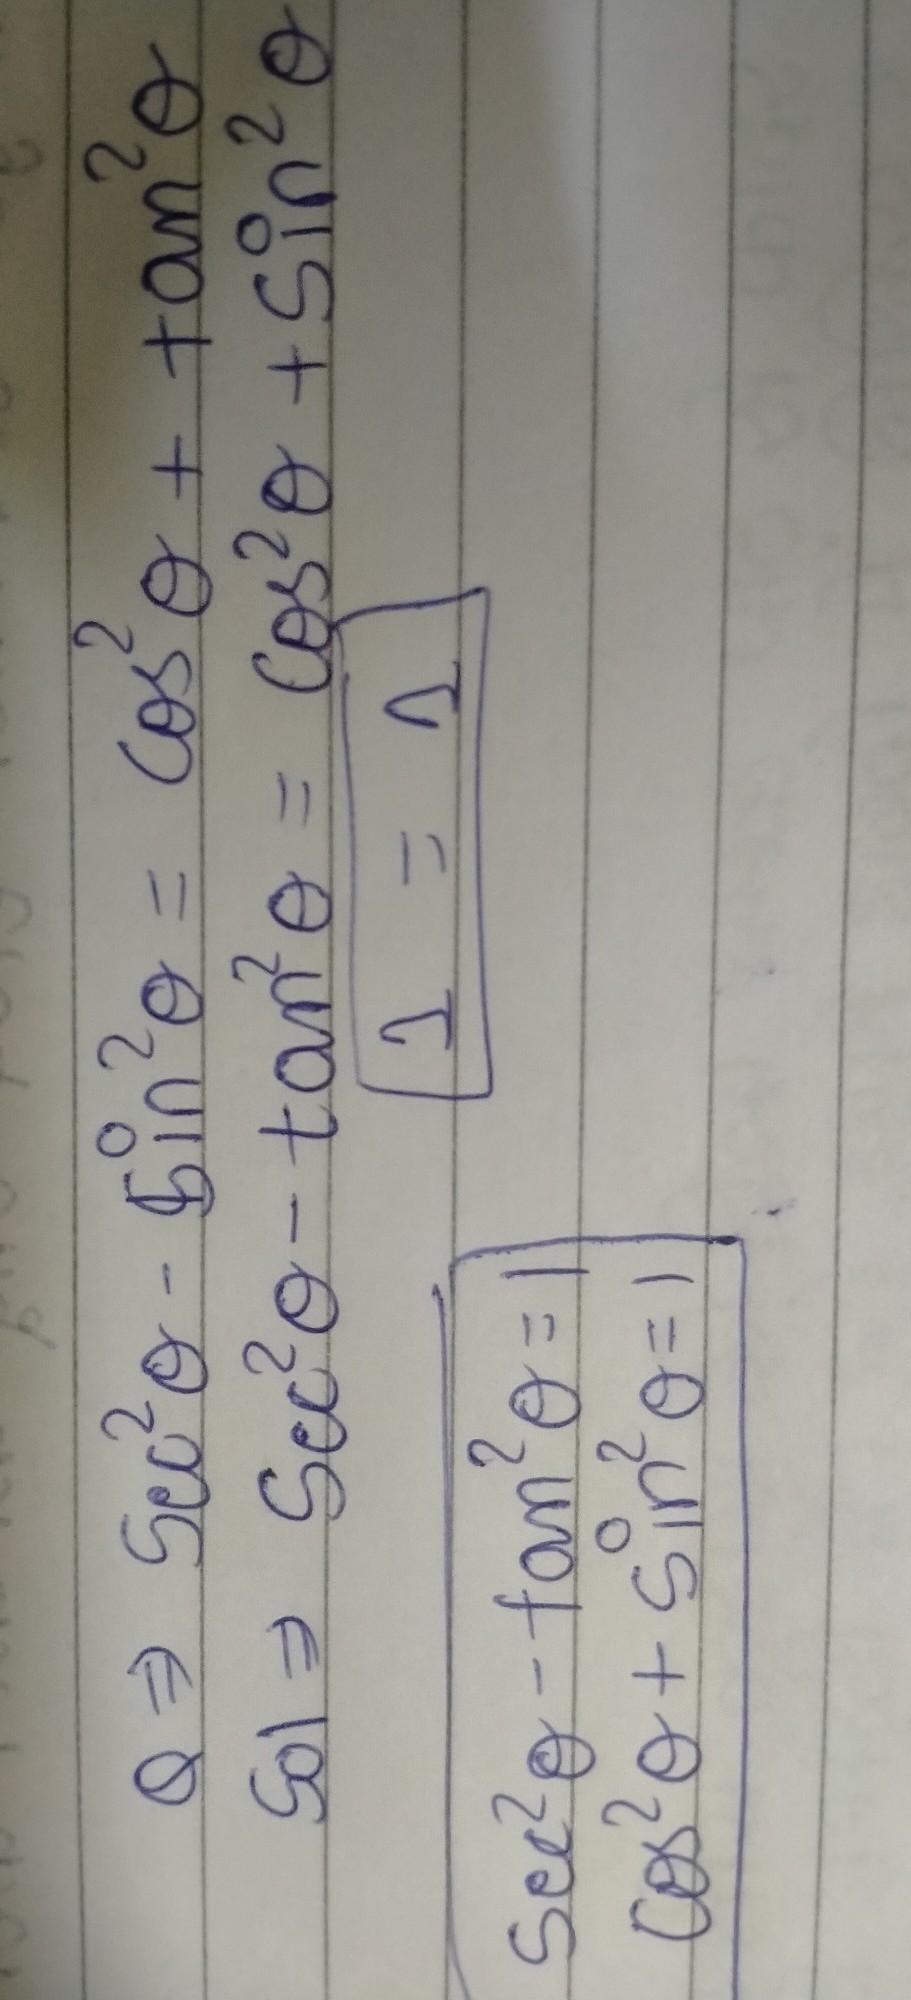 Q ⇒ Sec²θ - Sin²θ = Cos²θ + tan²θ
Sol ⇒ Sec²θ - tan²θ = Cos²θ + Sin²θ
1 = 1
Sec²θ - tan²θ = 1
Cos²θ + Sin²θ = 1